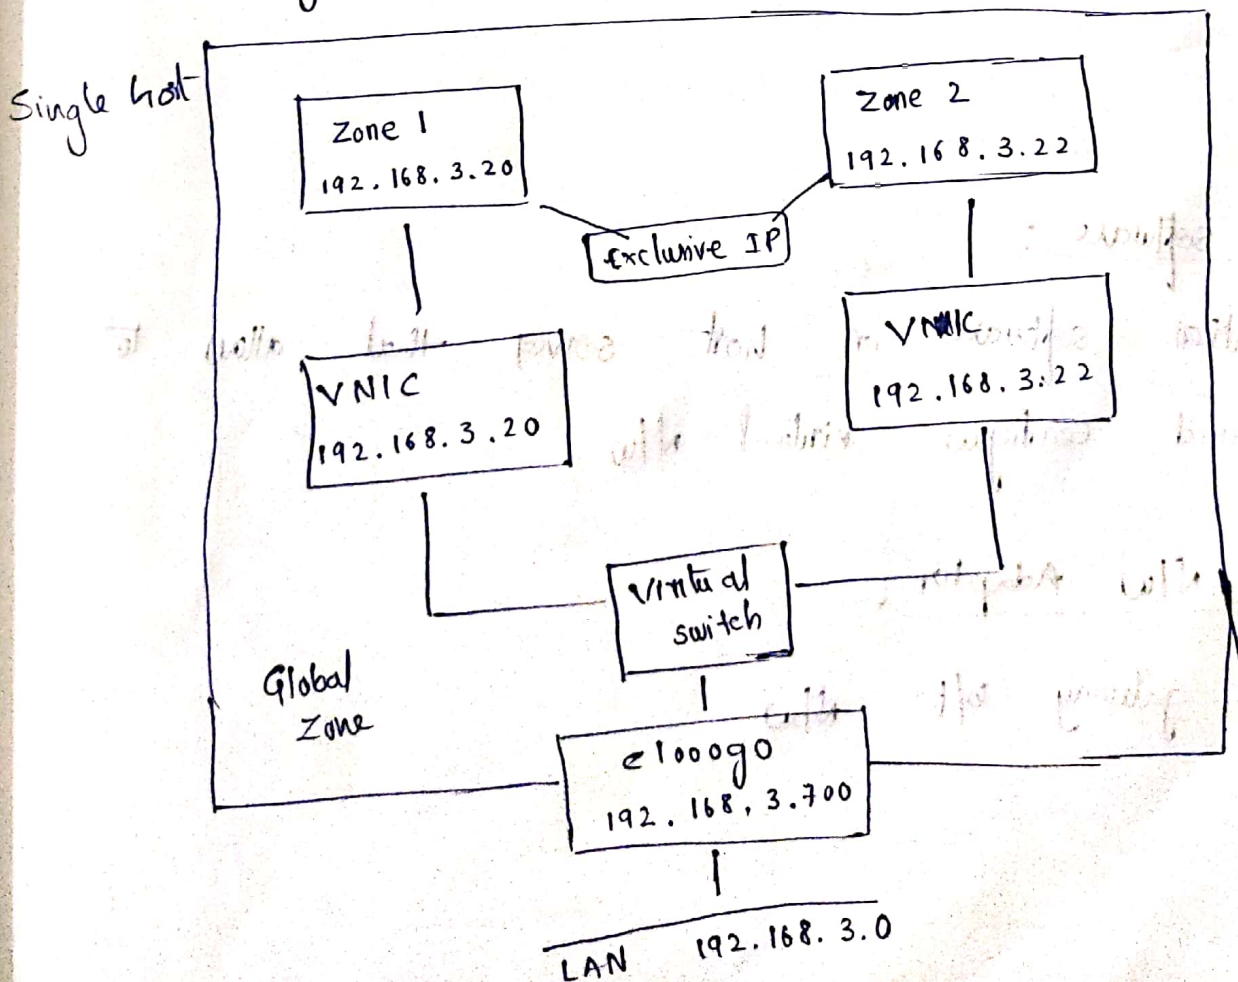 Single host
Zone 1
192.168.3.20
Zone 2
192.168.3.22
Exclusive IP
VNIC
192.168.3.20
VNIC
192.168.3:22
Virtual
switch
Global
Zone
e1000g0
192.168.3.700
LAN 192.168.3.0